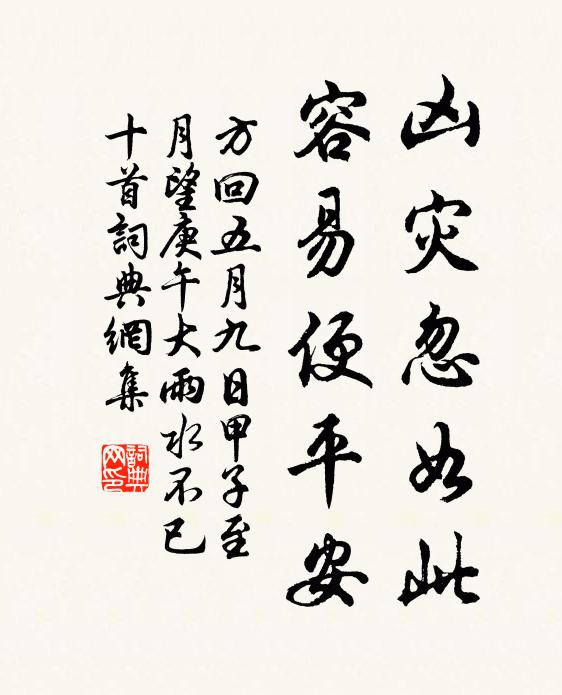 凶灾忽如此
容易便平安
方回五月九日甲子至
月望庚午大雨水不已
十首詞典網集
詞典网印